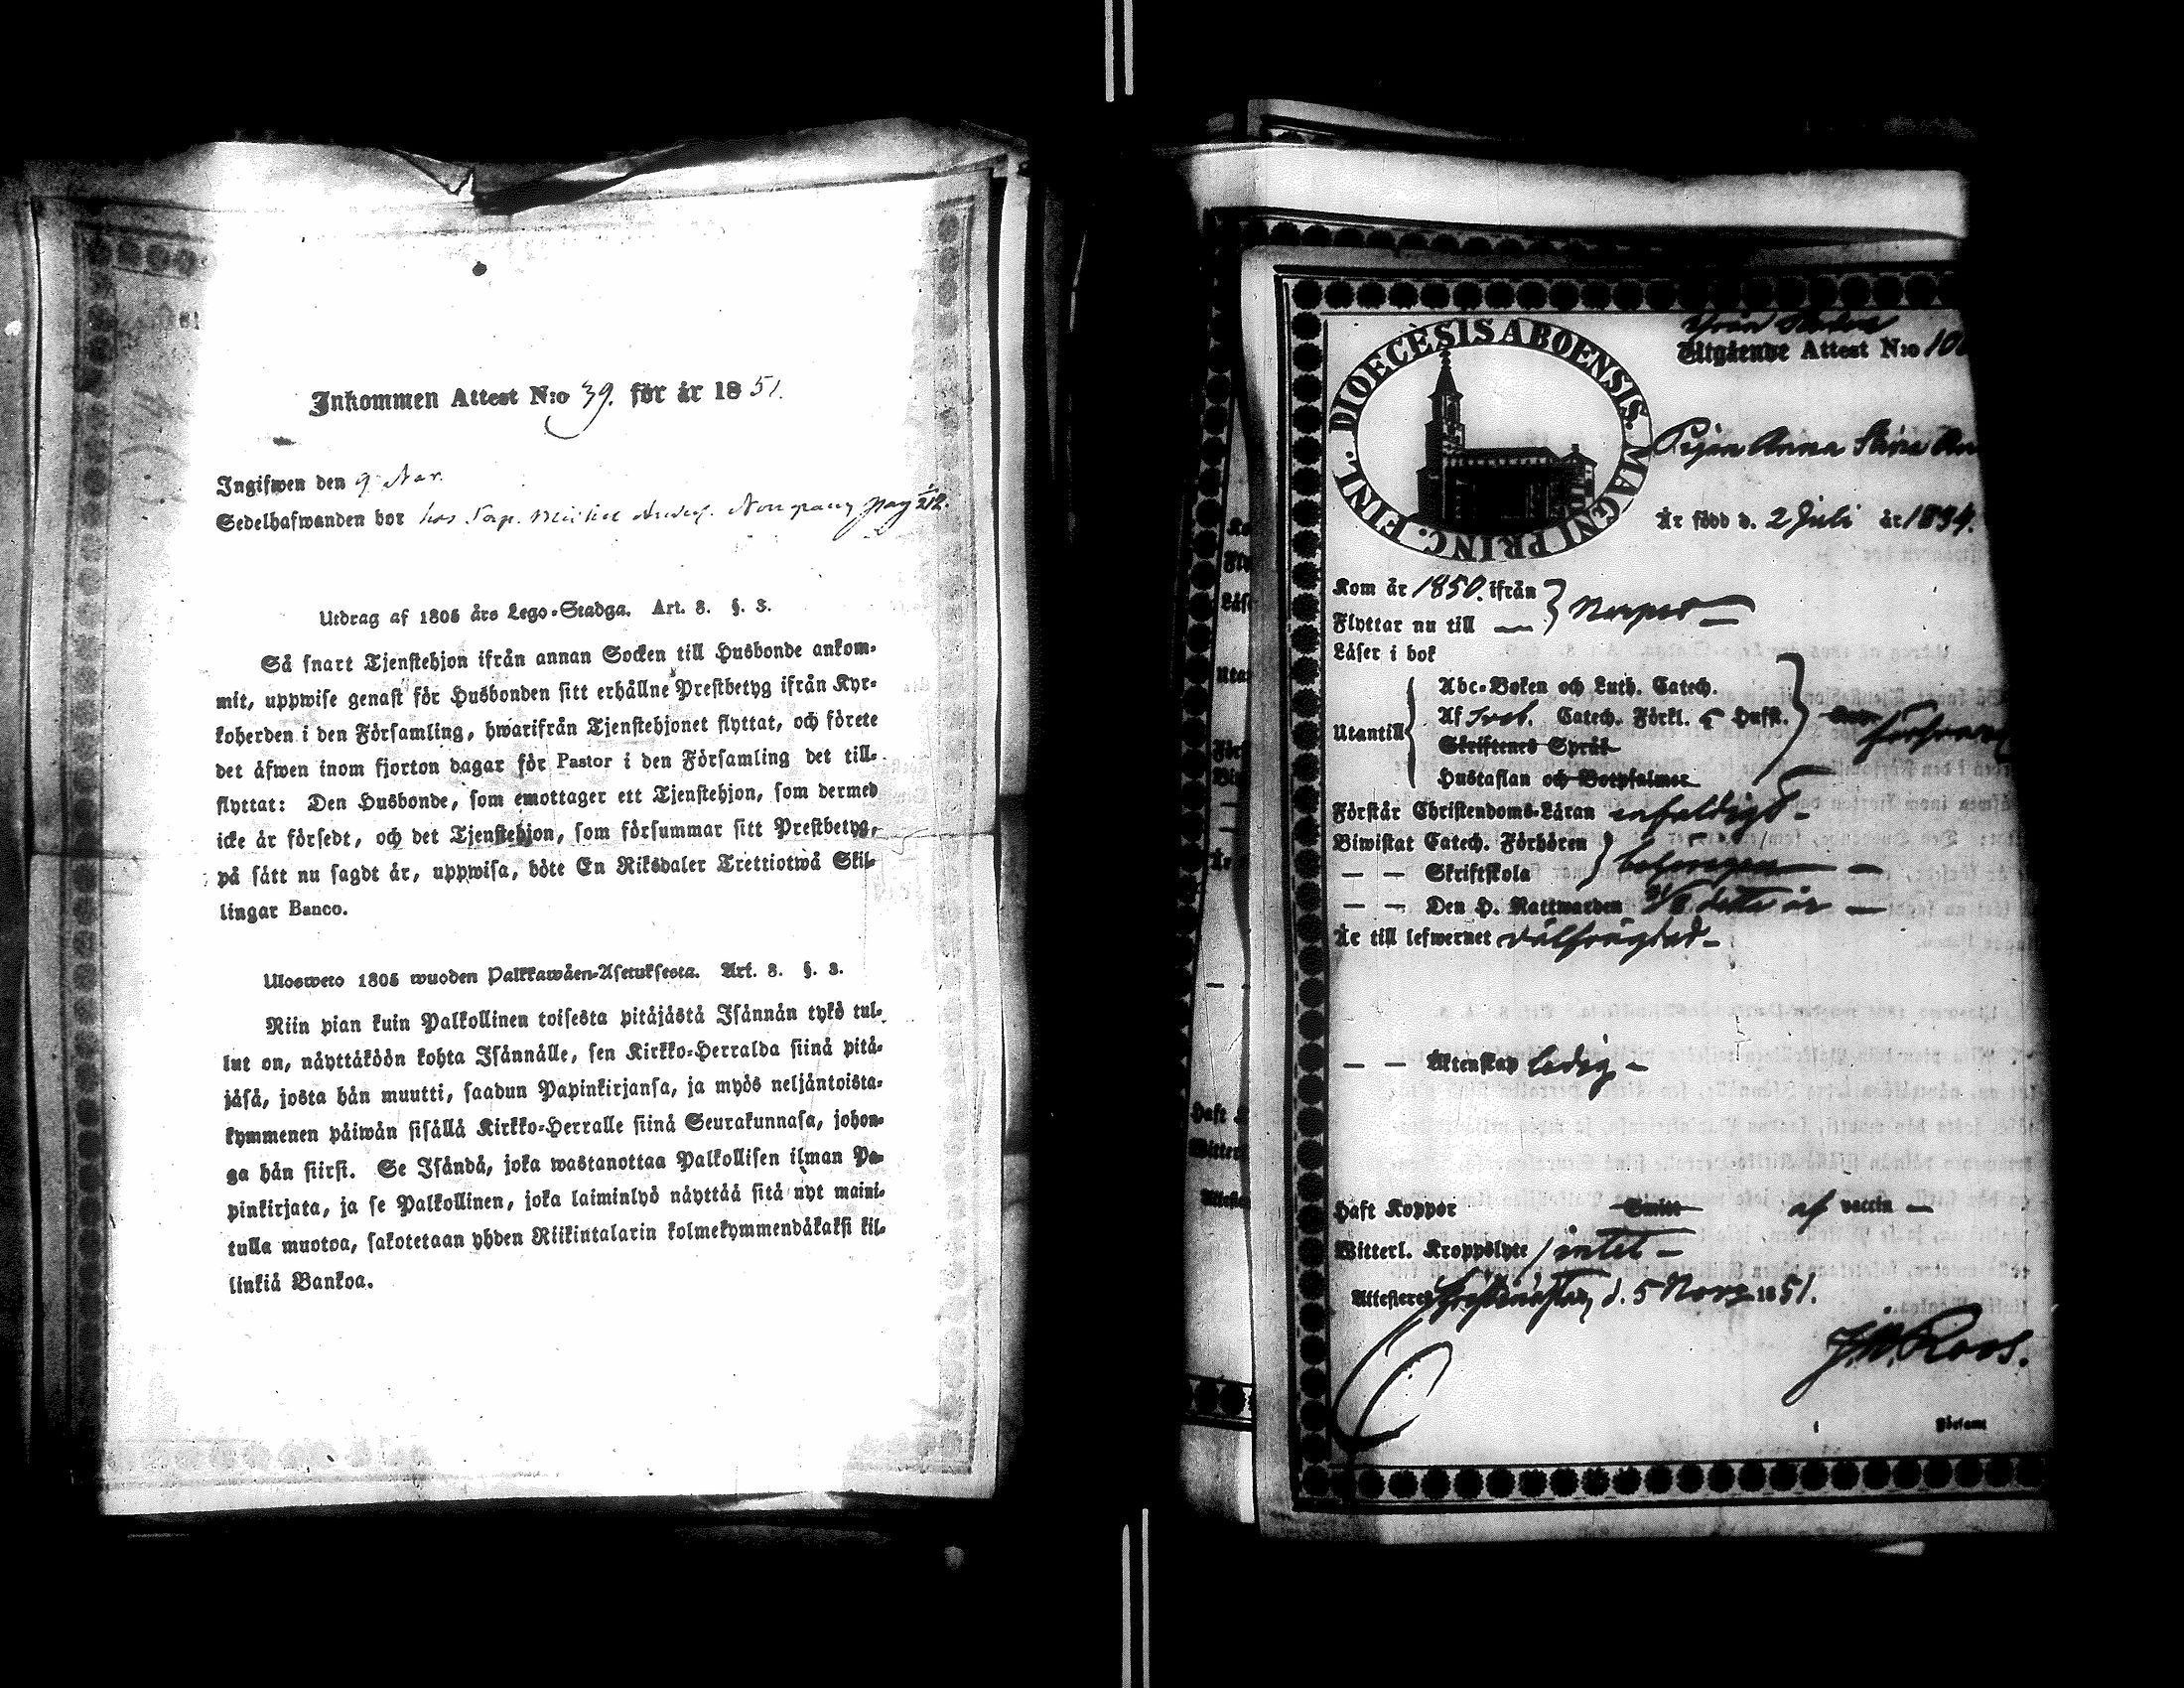 Inkommen Attest N:o 39. för år 1851.
Ingifwen den 9 Nov.
Sedelhafwanden bor hos Torp. Michel pag 212.
Utdrag af 1805 års Lego-Stadga. Art. 8. §. 3.
Så snart Tjenstehjon ifrån annan Socken till Husbonde ankom-
mit, uppwise genast för Husbonden sitt erhållne Prestbetyg ifrån Kyr-
koherden i den Församling, hwarifrån Tjenstehjonet flyttat, och förete
det äfwen inom fjorton dagar för Pastor i den Församling det till-
flyttat: Den Husbonde, som emottager ett Tjenstehjon, som dermed
icke är försedt, och det Tjenstehjon, som försummar sitt Prestbetyg,
på sätt nu sagdt är, uppwisa, böte En Riksdaler Trettiotwå Skil-
lingar Banco.
Ulosweto 1805 wuoden Palkkawäen-Asetuksesta. Art. 8. §. 3.
Niin pian kuin Palkollinen toisesta pitäjästä Isännän tykö tul-
lut on, näyttäköön kohta Isännälle, sen Kirkko-Herralda siinä pitä-
jäsä, josta hän muutti, saadun Papinkirjansa, ja myös neljäntoista-
kymmenen päiwän sisällä Kirkko-Herralle siinä Seurakunnasa, johon-
ga hän siirsi. Se Isändä, joka wastanottaa Palkollisen ilman Pa-
pinkirjata, ja se Palkollinen, joka laiminlyö näyttää sitä nyt maini-
tulla muotoa, sakotetaan yhden Riikintalarin kolmekymmendäkaksi kil-
linkiä Bankoa.
DIOECESIS ABOENSIS. MAGNI PRINC. FINL.
Från
Utgående Attest N:o 10
Pigan Anna Stina An
Är född d. 2 Juli år 1834.
Kom år 1850. ifrån
Flyttar nu till — Nerpes —
Läser i bok
Abc-Boken och Luth. Catech.
Utantill Af Sveb. Catech. Förkl. 5 Hufst. försvarl
Skriftenes Språk
Hustaflan och Botpsalmer
Förstår Christendoms-Läran enfaldigt —
Biwistat Catech. Förhören
— — Skriftskola behörigen —
— — Den H. Nattwarden detta år —
Är till lefwernet välfrägdad —
— — Äktenskap ledig —
Haft Koppor Smitt af vaccin —
Witterl. Kroppslyte intet —
Attesteres d. 5 Nov. 1851.
J. W. Roos.